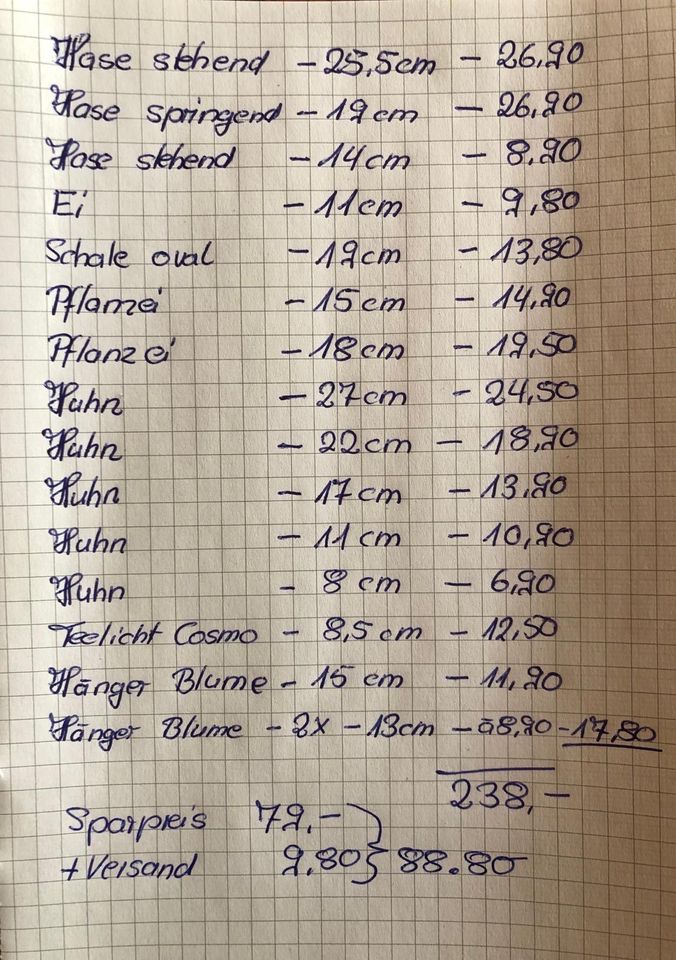 Hase stehend - 25,5cm - 26,90
Hase springend - 19cm - 26,90
Hase stehend - 14cm - 8,90
Ei - 11cm - 9,80
Schale oval - 19cm - 13,80
Pflanzei - 15cm - 14,90
Pflanzei - 18cm - 19,50
Huhn - 27cm - 24,50
Huhn - 22cm - 18,90
Huhn - 17cm - 13,90
Huhn - 11cm - 10,90
Huhn - 8 cm - 6,90
Teelicht Cosmo - 8,5 cm - 12,50
Hänger Blume - 15 cm - 11,90
Hänger Blume - 2x - 13cm - à8,90 - 17,80
238,-
Sparpreis 79.-
+ Versand 9.80 } 88.80